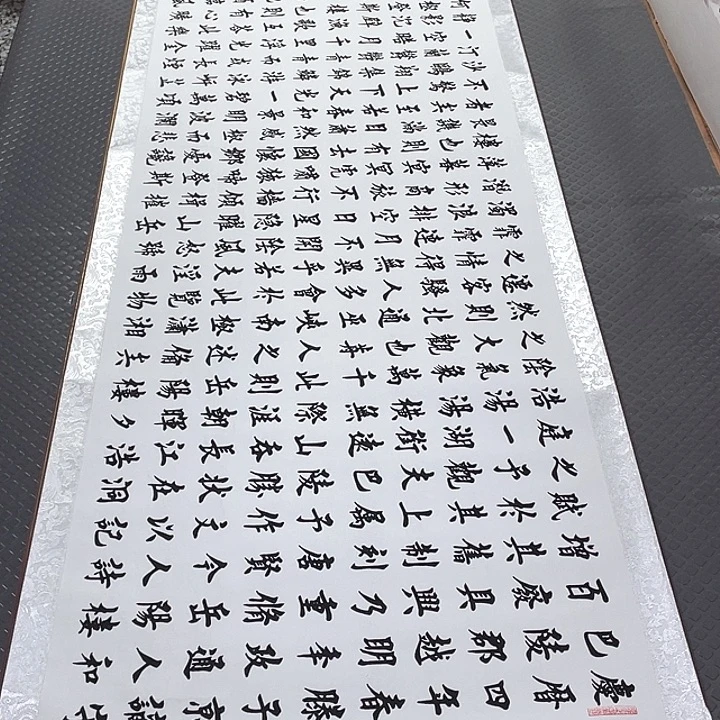 慶曆四年春滕子京謫守
巴陵郡越明年政通人和
百廢具興乃重脩岳陽樓
增其舊制刻唐賢今人詩
賦於其上屬予作文以記
之予觀夫巴陵勝狀在洞
庭一湖銜遠山吞長江浩
浩湯湯橫無際涯朝暉夕
陰氣象萬千此則岳陽樓
之大觀也前人之述備矣
然則北通巫峽南極瀟湘
遷客騷人多會於此覽物
之情得無異乎若夫霪雨
霏霏連月不開陰風怒號
濁浪排空日星隱曜山岳
潛形商旅不行檣傾楫摧
薄暮冥冥虎嘯猿啼登斯
樓也則有去國懷鄉憂讒
畏譏滿目蕭然感極而悲
者矣至若春和景明波瀾
不驚上下天光一碧萬頃
沙鷗翔集錦鱗游泳岸芷
汀蘭郁郁青青而或長煙
一空皓月千里浮光躍金